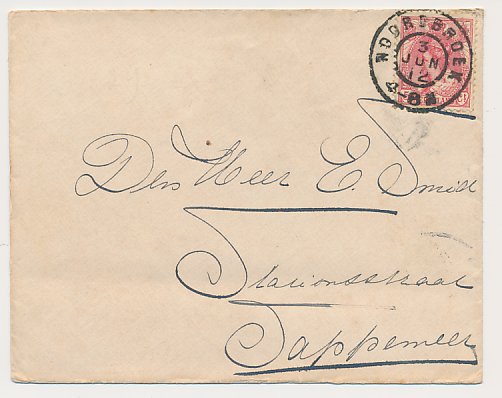 NOORDBROEK
3
JUN
12
4-8N
Den Heer E. Smid
Stationsstraat
Sappemeer